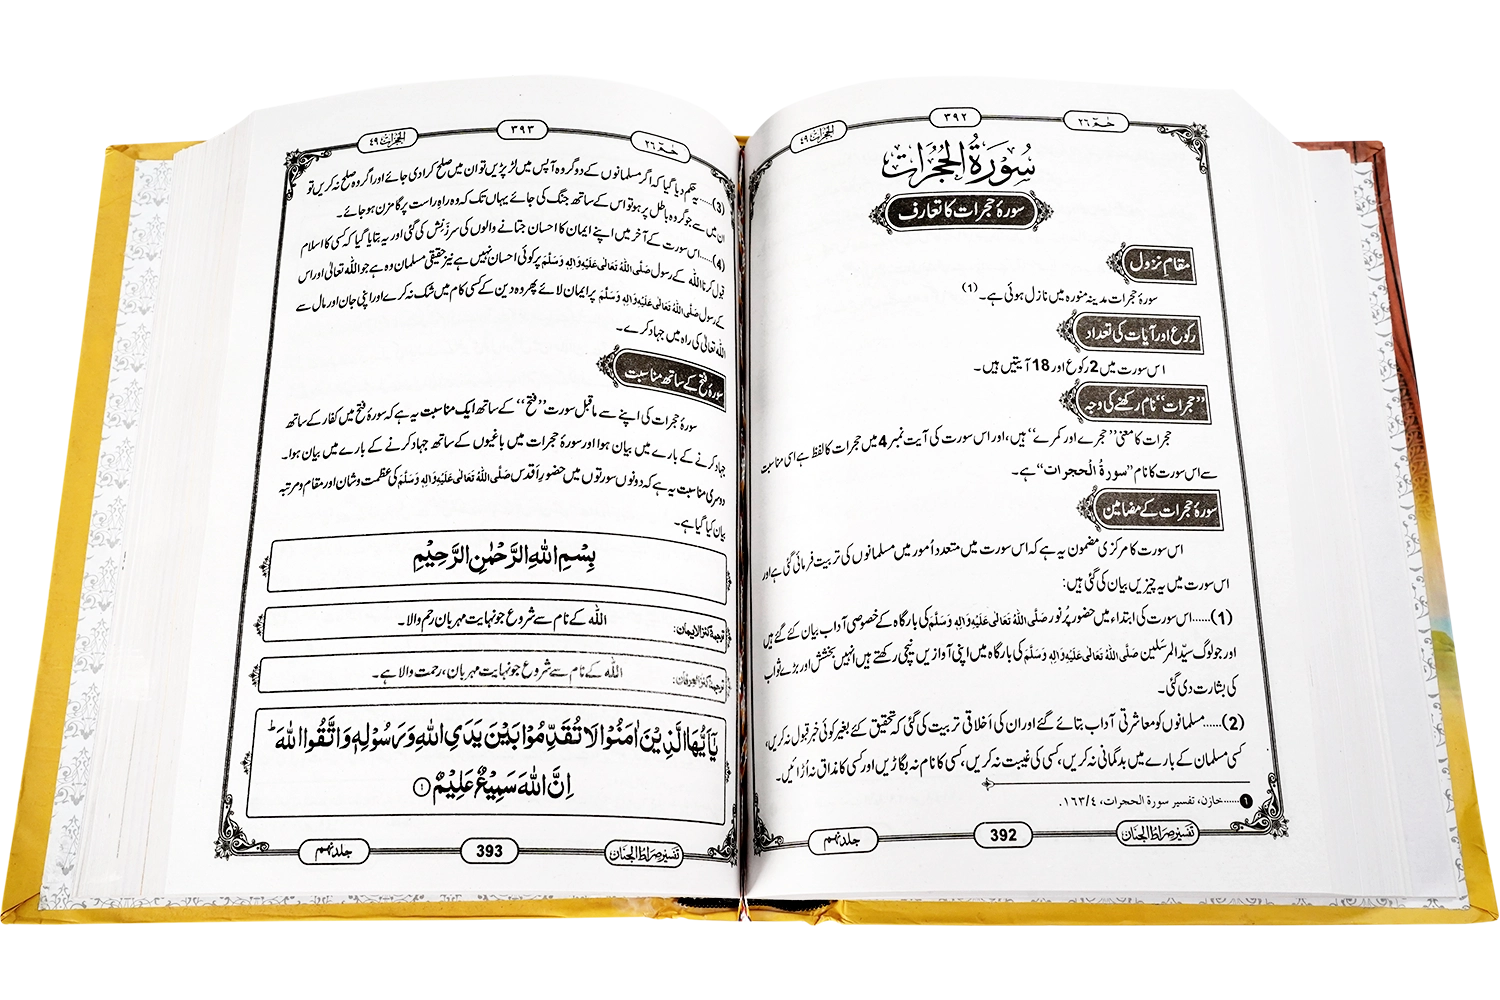 الحجرات ٤٩
٣٩٢
حٰمٓ ٢٦
سُوْرَةُ الْحُجُرَات
سورۂ حجرات کا تعارف
مقامِ نزول
سورۂ حجرات مدینہ منورہ میں نازل ہوئی ہے۔ (۱)
رکوع اور آیات کی تعداد
اس سورت میں 2 رکوع اور 18 آیتیں ہیں۔
’’حجرات‘‘ نام رکھنے کی وجہ
حجرات کا معنی ’’حجرے اور کمرے‘‘ ہیں، اور اس سورت کی آیت نمبر 4 میں حجرات کا لفظ ہے اسی مناسبت
سے اس سورت کا نام ’’سورۃُ الْحجرات‘‘ ہے۔
سورۂ حجرات کے مضامین
اس سورت کا مرکزی مضمون یہ ہے کہ اس سورت میں متعدد اُمور میں مسلمانوں کی تربیت فرمائی گئی ہے اور
اس سورت میں یہ چیزیں بیان کی گئی ہیں:
(1)......اس سورت کی ابتداء میں حضور پُر نور صَلَّی اللہُ تَعَالٰی عَلَیْہِ وَاٰلِہٖ وَسَلَّمَ کی بارگاہ کے خصوصی آداب بیان کئے گئے ہیں
اور جو لوگ سیّد المرسَلین صَلَّی اللہُ تَعَالٰی عَلَیْہِ وَاٰلِہٖ وَسَلَّمَ کی بارگاہ میں اپنی آوازیں نیچی رکھتے ہیں انہیں بخشش اور بڑے ثواب
کی بشارت دی گئی۔
(2)......مسلمانوں کو معاشرتی آداب بتائے گئے اور ان کی اَخلاقی تربیت کی گئی کہ تحقیق کئے بغیر کوئی خبر قبول نہ کریں،
کسی مسلمان کے بارے میں بدگمانی نہ کریں، کسی کی غیبت نہ کریں، کسی کا نام نہ بگاڑیں اور کسی کا مذاق نہ اُڑائیں۔
١......خازن، تفسیر سورۃ الحجرات، ٤/١٦٣.
تفسیر صراط الجنان
392
جلد نہم
الحجرات ٤٩
٣٩٣
حٰمٓ ٢٦
(3)......یہ حکم دیا گیا کہ اگر مسلمانوں کے دو گروہ آپس میں لڑ پڑیں تو ان میں صلح کرا دی جائے اور اگر وہ صلح نہ کریں تو
ان میں سے جو گروہ باطل پر ہو تو اس کے ساتھ جنگ کی جائے یہاں تک کہ وہ راہِ راست پر گامزن ہو جائے۔
(4)......اس سورت کے آخر میں اپنے ایمان کا احسان جتانے والوں کی سرزَنِش کی گئی اور یہ بتایا گیا کہ کسی کا اسلام
قبول کرنا اللہ کے رسول صَلَّی اللہُ تَعَالٰی عَلَیْہِ وَاٰلِہٖ وَسَلَّمَ پر کوئی احسان نہیں ہے نیز حقیقی مسلمان وہ ہے جو اللہ تعالیٰ اور اس
کے رسول صَلَّی اللہُ تَعَالٰی عَلَیْہِ وَاٰلِہٖ وَسَلَّمَ پر ایمان لائے پھر وہ دین کے کسی کام میں شک نہ کرے اور اپنی جان اور مال سے
اللہ تعالیٰ کی راہ میں جہاد کرے۔
سورۂ فتح کے ساتھ مناسبت
سورۂ حجرات کی اپنے سے ماقبل سورت ’’فتح‘‘ کے ساتھ ایک مناسبت یہ ہے کہ سورۂ فتح میں کفار کے ساتھ
جہاد کرنے کے بارے میں بیان ہوا اور سورۂ حجرات میں باغیوں کے ساتھ جہاد کرنے کے بارے میں بیان ہوا۔
دوسری مناسبت یہ ہے کہ دونوں سورتوں میں حضورِ اَقدس صَلَّی اللہُ تَعَالٰی عَلَیْہِ وَاٰلِہٖ وَسَلَّمَ کی عظمت و شان اور مقام و مرتبہ
بیان کیا گیا ہے۔
بِسْمِ اللّٰهِ الرَّحْمٰنِ الرَّحِيْمِ
ترجمۂ کنزالایمان: اللہ کے نام سے شروع جو نہایت مہربان رحم والا۔
ترجمۂ کنزالعرفان: اللہ کے نام سے شروع جو نہایت مہربان، رحمت والا ہے۔
يٰۤاَيُّهَا الَّذِيْنَ اٰمَنُوْا لَا تُقَدِّمُوْا بَيْنَ يَدَيِ اللّٰهِ وَ رَسُوْلِهٖ وَ اتَّقُوا اللّٰهَؕ
اِنَّ اللّٰهَ سَمِيْعٌ عَلِيْمٌ ①
تفسیر صراط الجنان
393
جلد نہم